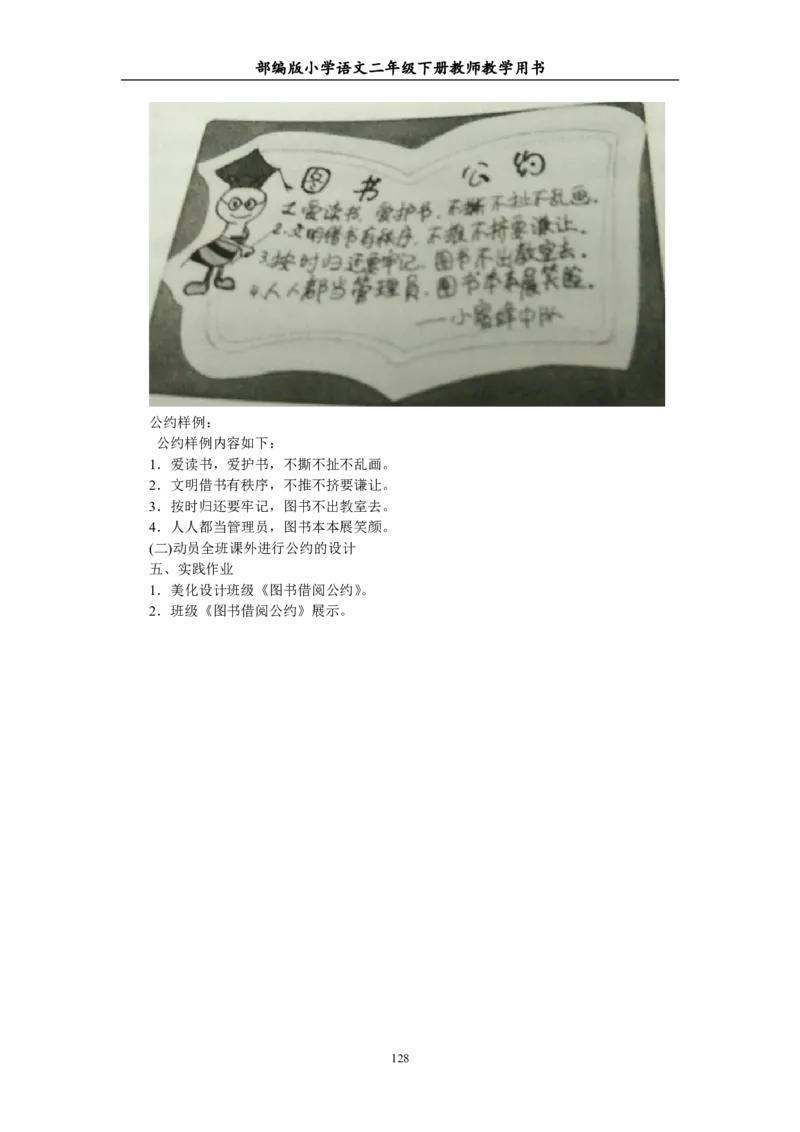 部编版小学语文二年级下册教师教学用书
图书 公约
1.爱读书,爱护书,不撕不扯不乱画。
2.文明借书有秩序,不推不挤要谦让。
3.按时归还要牢记,图书不出教室去。
4.人人都当管理员,图书本本展笑脸。
——小蜜蜂中队
公约样例：
公约样例内容如下：
1．爱读书，爱护书，不撕不扯不乱画。
2．文明借书有秩序，不推不挤要谦让。
3．按时归还要牢记，图书不出教室去。
4．人人都当管理员，图书本本展笑颜。
(二)动员全班课外进行公约的设计
五、实践作业
1．美化设计班级《图书借阅公约》。
2．班级《图书借阅公约》展示。
128